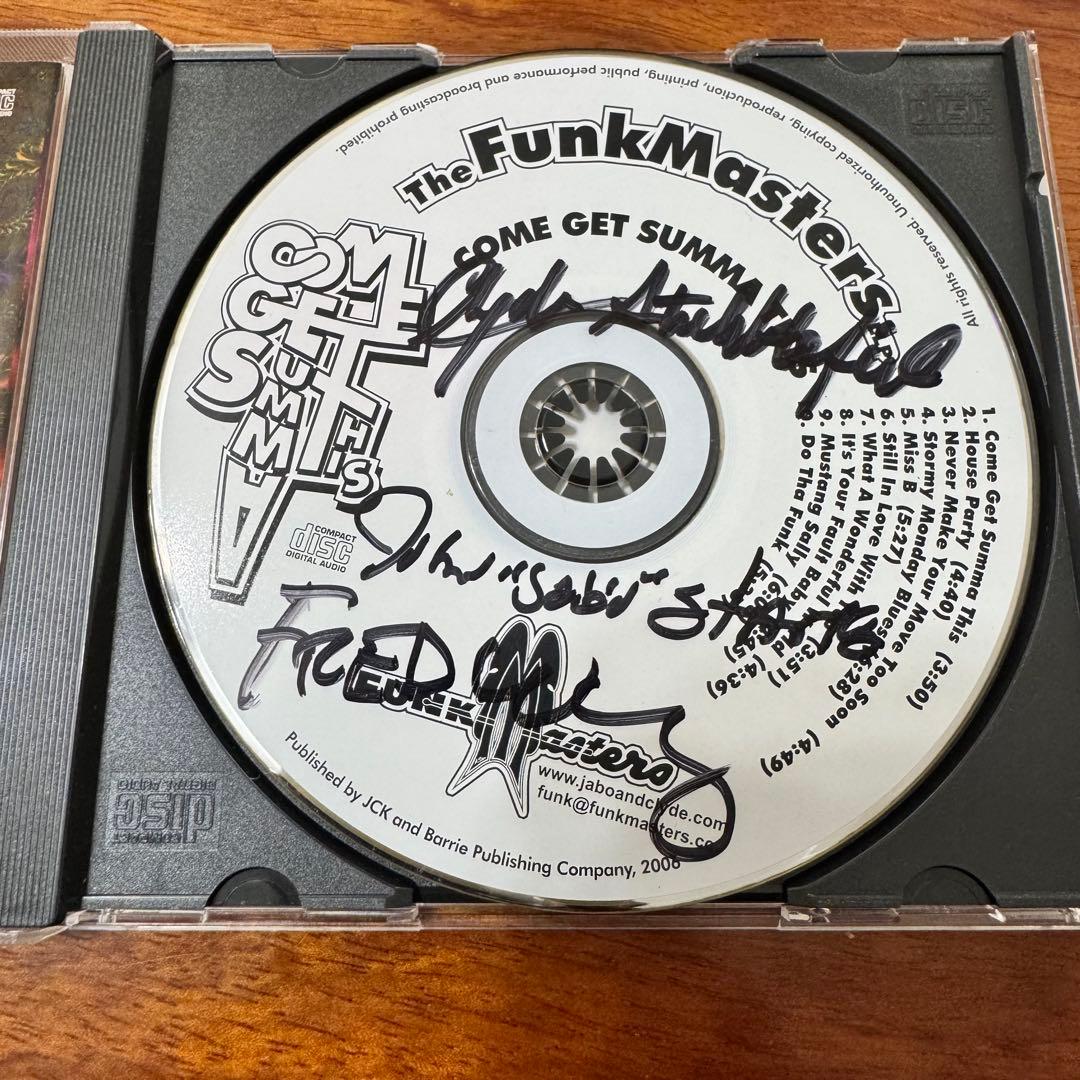 All rights reserved. Unauthorized copying, reproduction, printing, public performance and broadcasting prohibited.
The FunkMasters
COME GET SUMMA THIS
COME
GET THIS
SUMMA
Clyde Stubblefield
1. Come Get Summa This (3:50)
2. House Party (4:40)
3. Never Make Your Move Too Soon (4:49)
4. Stormy Monday Blues
5. Miss B (5:27)
6. Still In Love With
7. What A Wonderful
8. It's Your Fault Baby
9. Mustang Sally
9. Do Tha Funk
COMPACT
disc
DIGITAL AUDIO
John "Jabo" Starks
FRED Wesley
FunkMasters
www.jaboandclyde.com
funk@funkmasters.co
Published by JCK and Barrie Publishing Company, 2006
COMPACT
disc
DIGITAL AUDIO